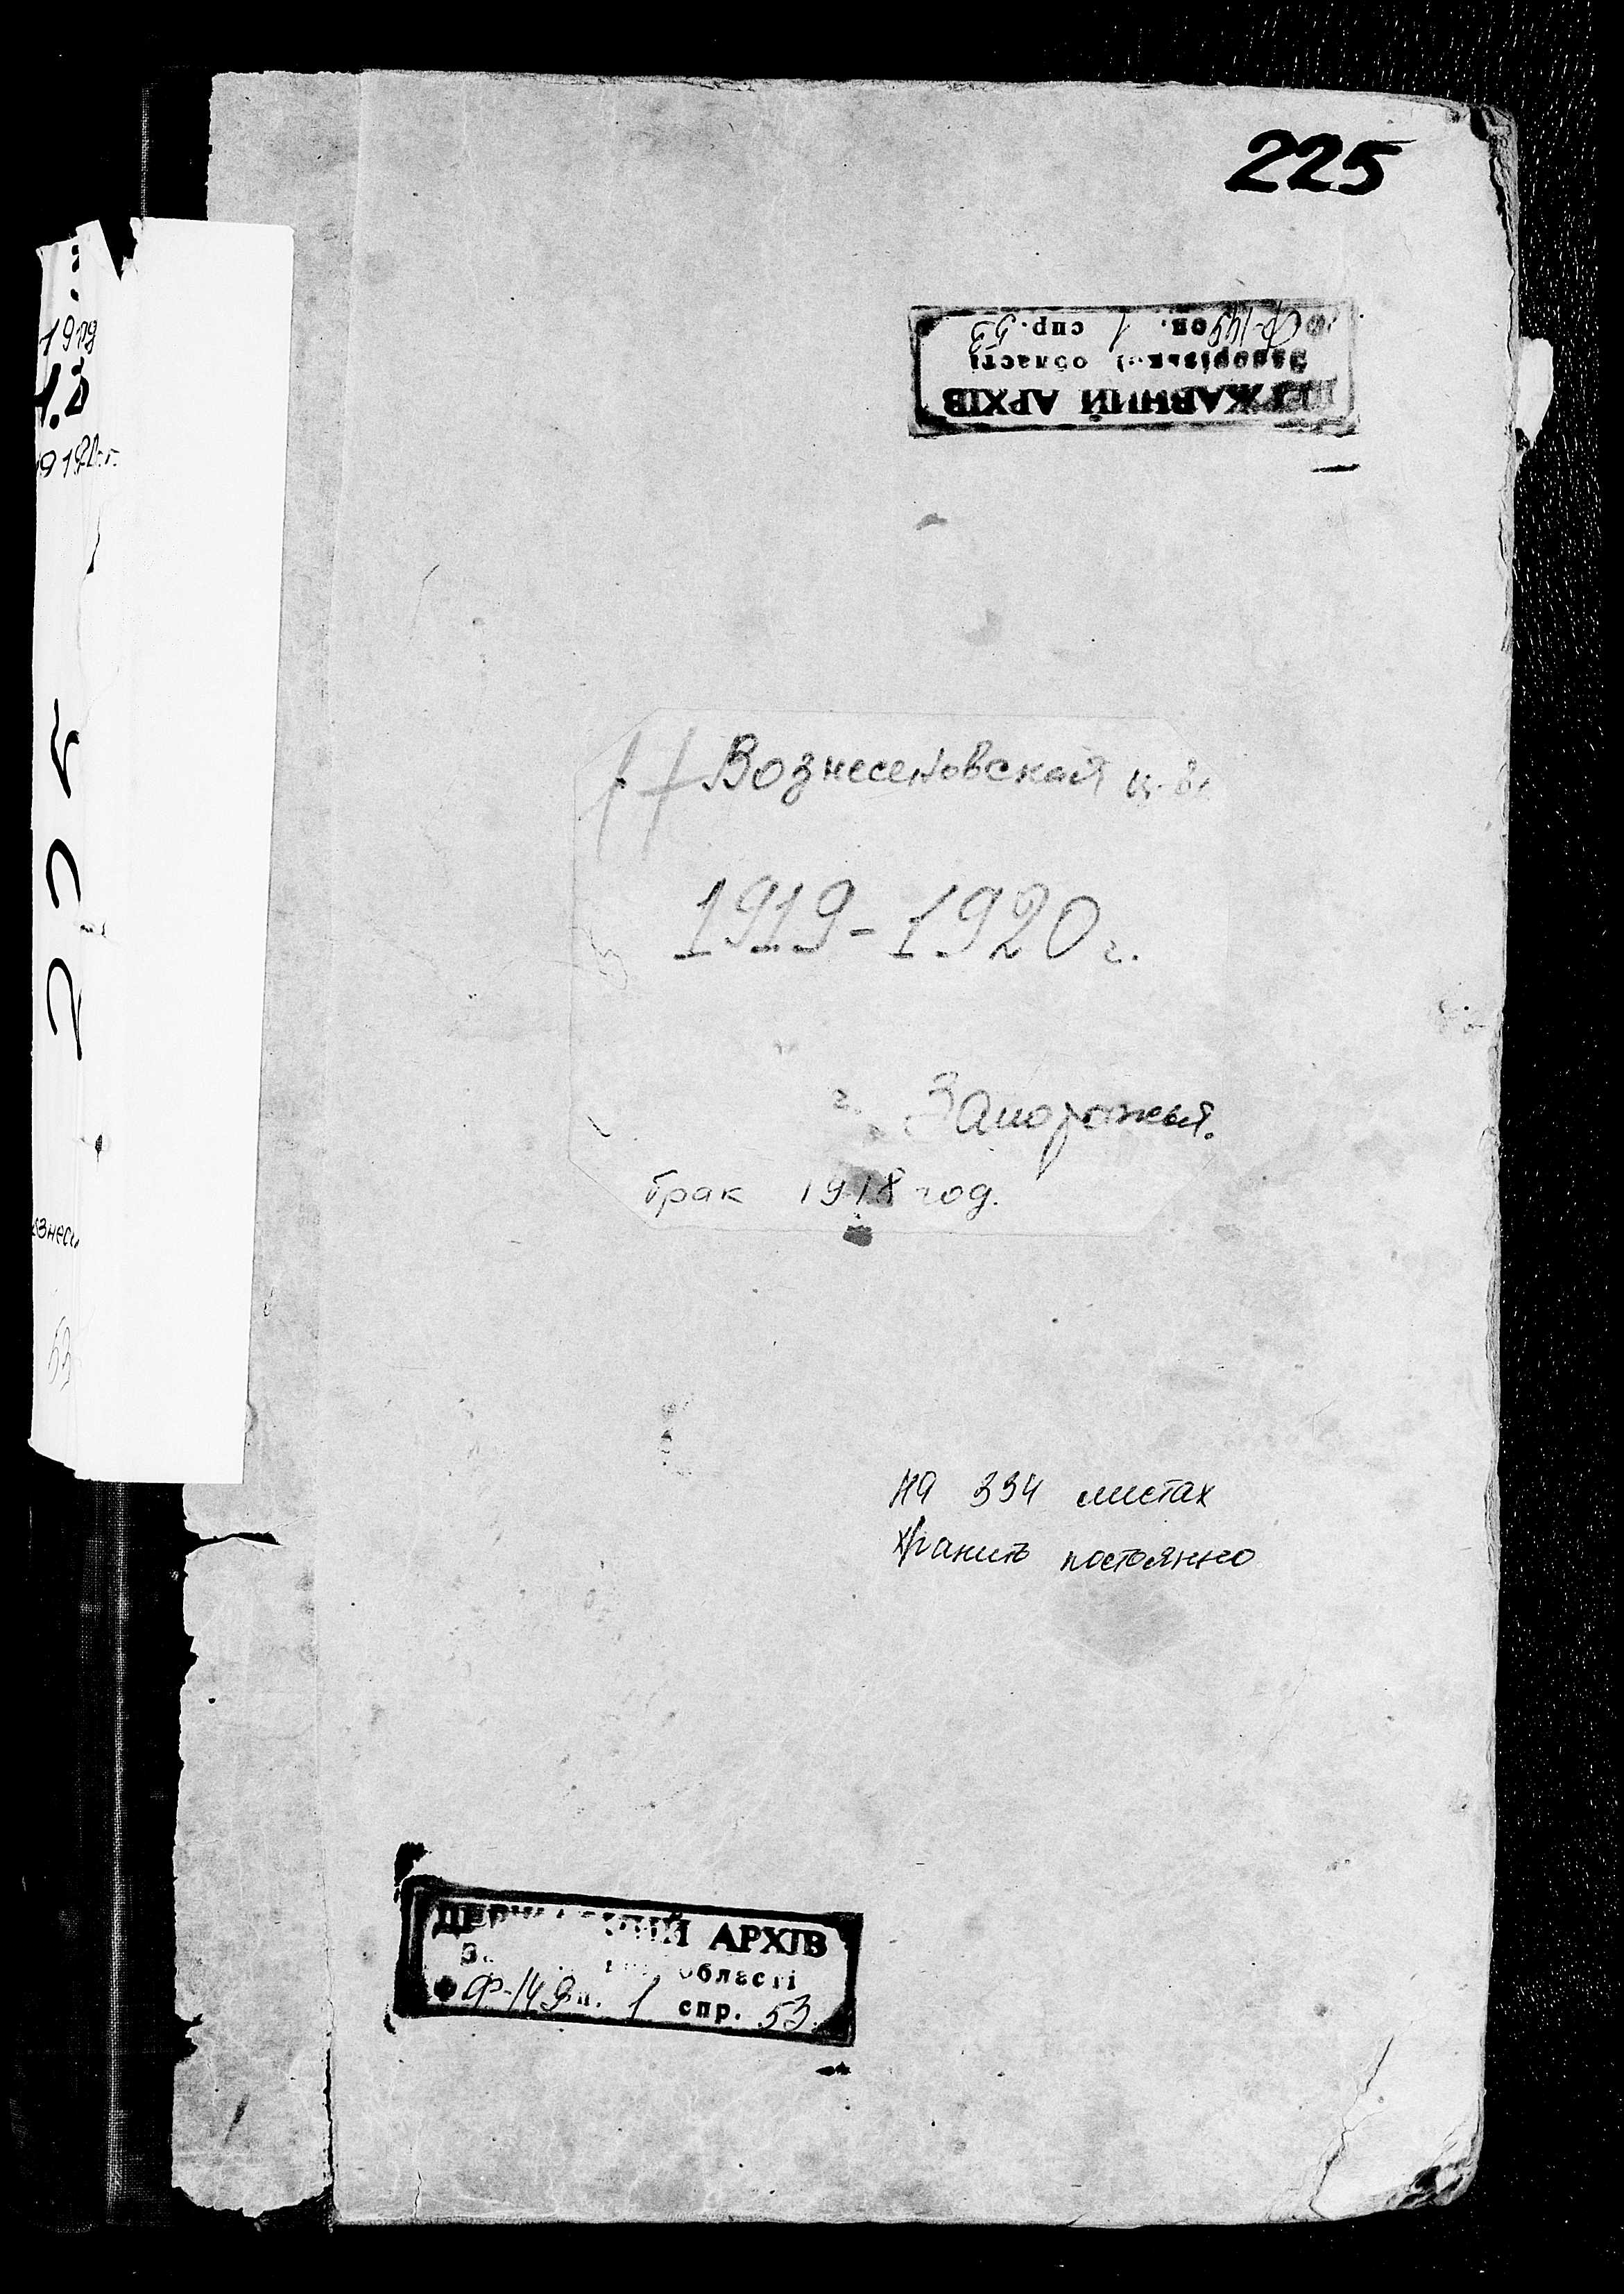 225
ДЕРЖАВНИЙ АРХІВ
Запорізької області
Ф-149 оп. 1 спр. 53
Вознесеновская ц-вь
1919-1920 г.
г. Запорожья.
брак 1918 год.
на 334 листах
хранить постоянно
ДЕРЖАВНИЙ АРХІВ
області
Ф-149 оп. 1 спр. 53